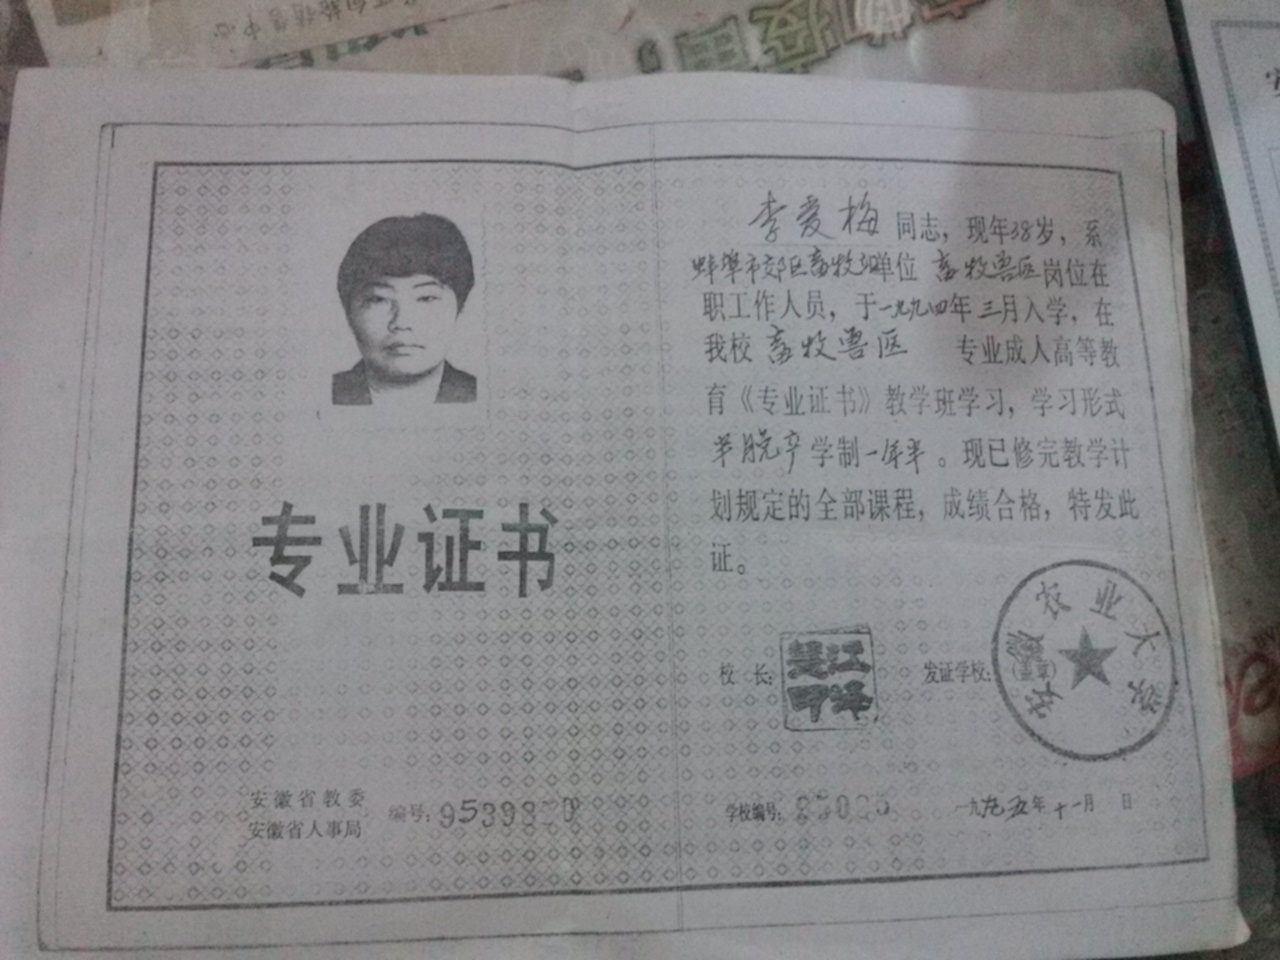 专业证书
安徽省教委
安徽省人事局
编号:
李爱梅同志，现年38岁，系
蚌埠市郊区畜牧站单位畜牧兽医岗位在
职工作人员，于一九九四年三月入学，在
我校畜牧兽医专业成人高等教
育《专业证书》教学班学习，学习形式
半脱产学制一年半。现已修完教学计
划规定的全部课程，成绩合格，特发此
证。
校长:
发证学校:
安徽农业大学
学校编号:
一九九五年十一月 日